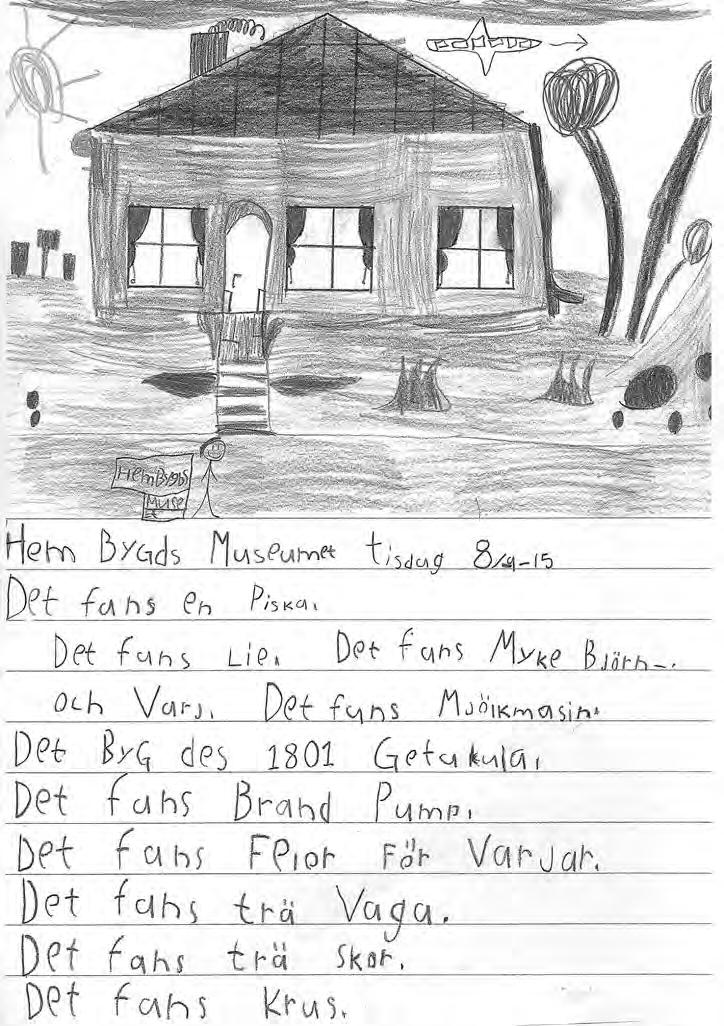 HemBygds
Muse
et
Hem Bygds Museumet tisdag 8/9-15
Det fans en Piska.
Det fans Lie. Det fans Myke Björn-.
och Varj. Det fans Mjölkmasin.
Det Byg des 1801 Getakula.
Det fans Brand Pump.
Det fans Feior För Varjar.
Det fans trä Vaga.
Det fans trä skor.
Det fans Krus.